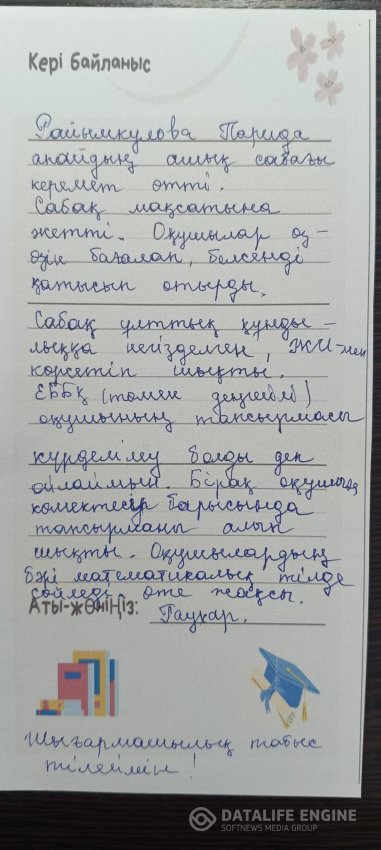 Кері байланыс
Райымкулова Парида
апайдың ашық сабағы
керемет өтті.
Сабақ мақсатына
жетті. Оқушылар өз-
өзін бағалап, белсенді
қатысып отырды.
Сабақ ұлттық құнды-
лыққа негізделген, ЖИ-мен
көрсетіп шықты.
ЕББҚ (төмен деңгейлі)
оқушының тапсырмасы
күрделілеу болды деп
ойлаймын. Бірақ оқушыға
көмектесір барысында
тапсырманы алып
шықты. Оқушылардың
бәрі математикалық тілде
сөйледі өте жақсы.
Аты-жөніңіз: Гаухар.
Шығармашылық табыс
тілеймін!
DATALIFE ENGINE
SOFTNEWS MEDIA GROUP